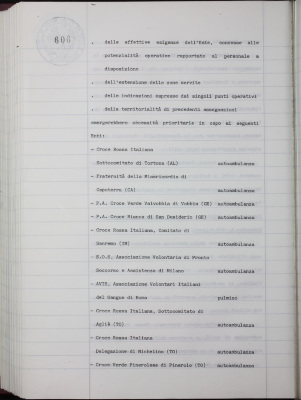 606
. delle effettive esigenze dell'Ente, connesse alle
potenzialità operative rapportate al personale a
disposizione
. dell'estensione delle zone servite
. delle indicazioni espresse dai singoli punti operativi
. della territorialità di precedenti assegnazioni
emergerebbero necessità prioritarie in capo ai seguenti
Enti:
- Croce Rossa Italiana
Sottocomitato di Tortona (AL) autoambulanza
- Fraternità della Misericordia di
Capoterra (CA) autoambulanza
- P.A. Croce Verde Valvobbia di Vobbia (GE) autoambulanza
- P.A. Croce Bianca di San Desiderio (GE) autoambulanza
- Croce Rossa Italiana, Comitato di
Sanremo (IM) autoambulanza
- Associazione Volontaria di Pronto
Soccorso e Assistenza di Milano autoambulanza
- AVIS, Associazione Volontari Italiani
del Sangue di Roma pulmino
- Croce Rossa Italiana, Sottocomitato di
Agliè (TO) autoambulanza
- Croce Rossa Italiana
Delegazione di Nichelino (TO) autoambulanza
- Croce Verde Pinerolese di Pinerolo (TO) autoambulanza